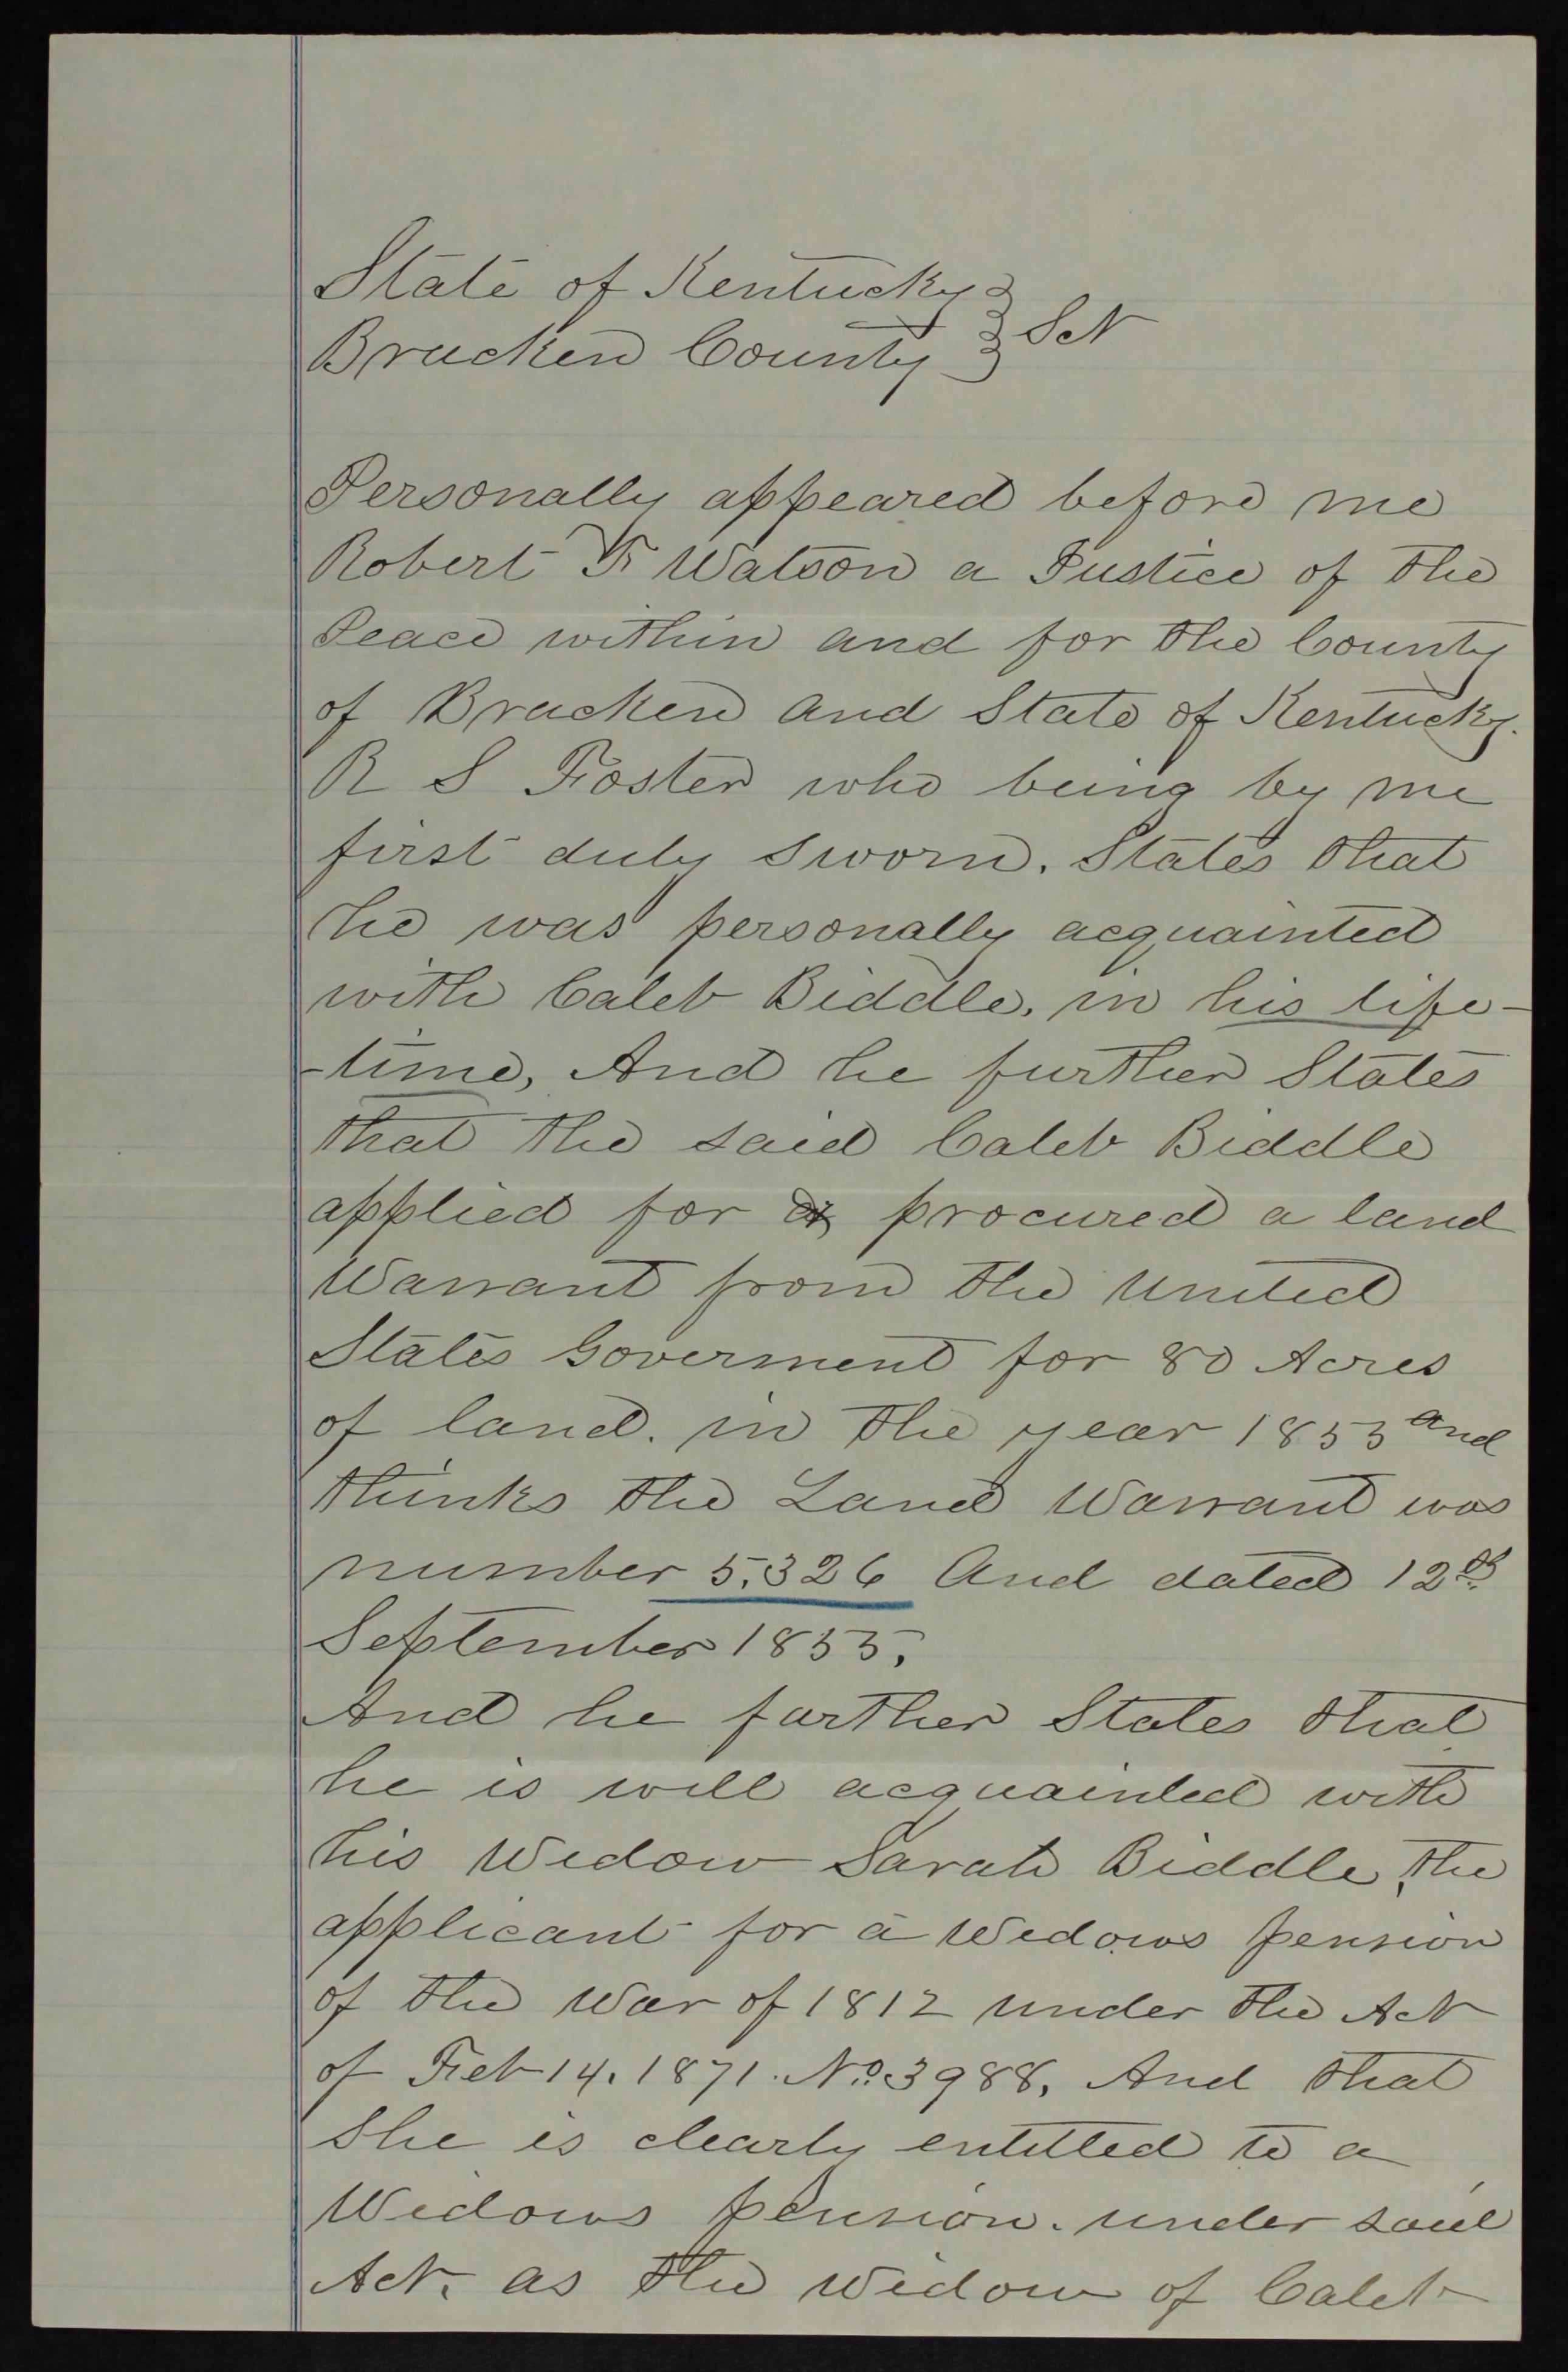 State of Kentucky }
Bracken County } Sct
Personally appeared before me
Robert F Watson a Justice of the
Peace within and for the County
of Bracken and State of Kentucky.
R S Foster who being by me
first duly sworn. States that
he was personally acquainted
with Caleb Biddle, in his life-
-time, And he further States
that the said Caleb Biddle
applied for & procured a land
Warrant from the United
States Goverment for 80 Acres
of land. in the year 1855 and
thinks the Land Warrant was
number 5.326 And dated 12th
September 1855.
And he further States that
he is well acquainted with
his Widow Sarah Biddle, the
applicant for a Widows pension
of the War of 1812 under the Act
of Feb 14. 1871. No. 3988, And that
She is clearly entitled to a
Widows pension. under said
Act. as the Widow of Caleb